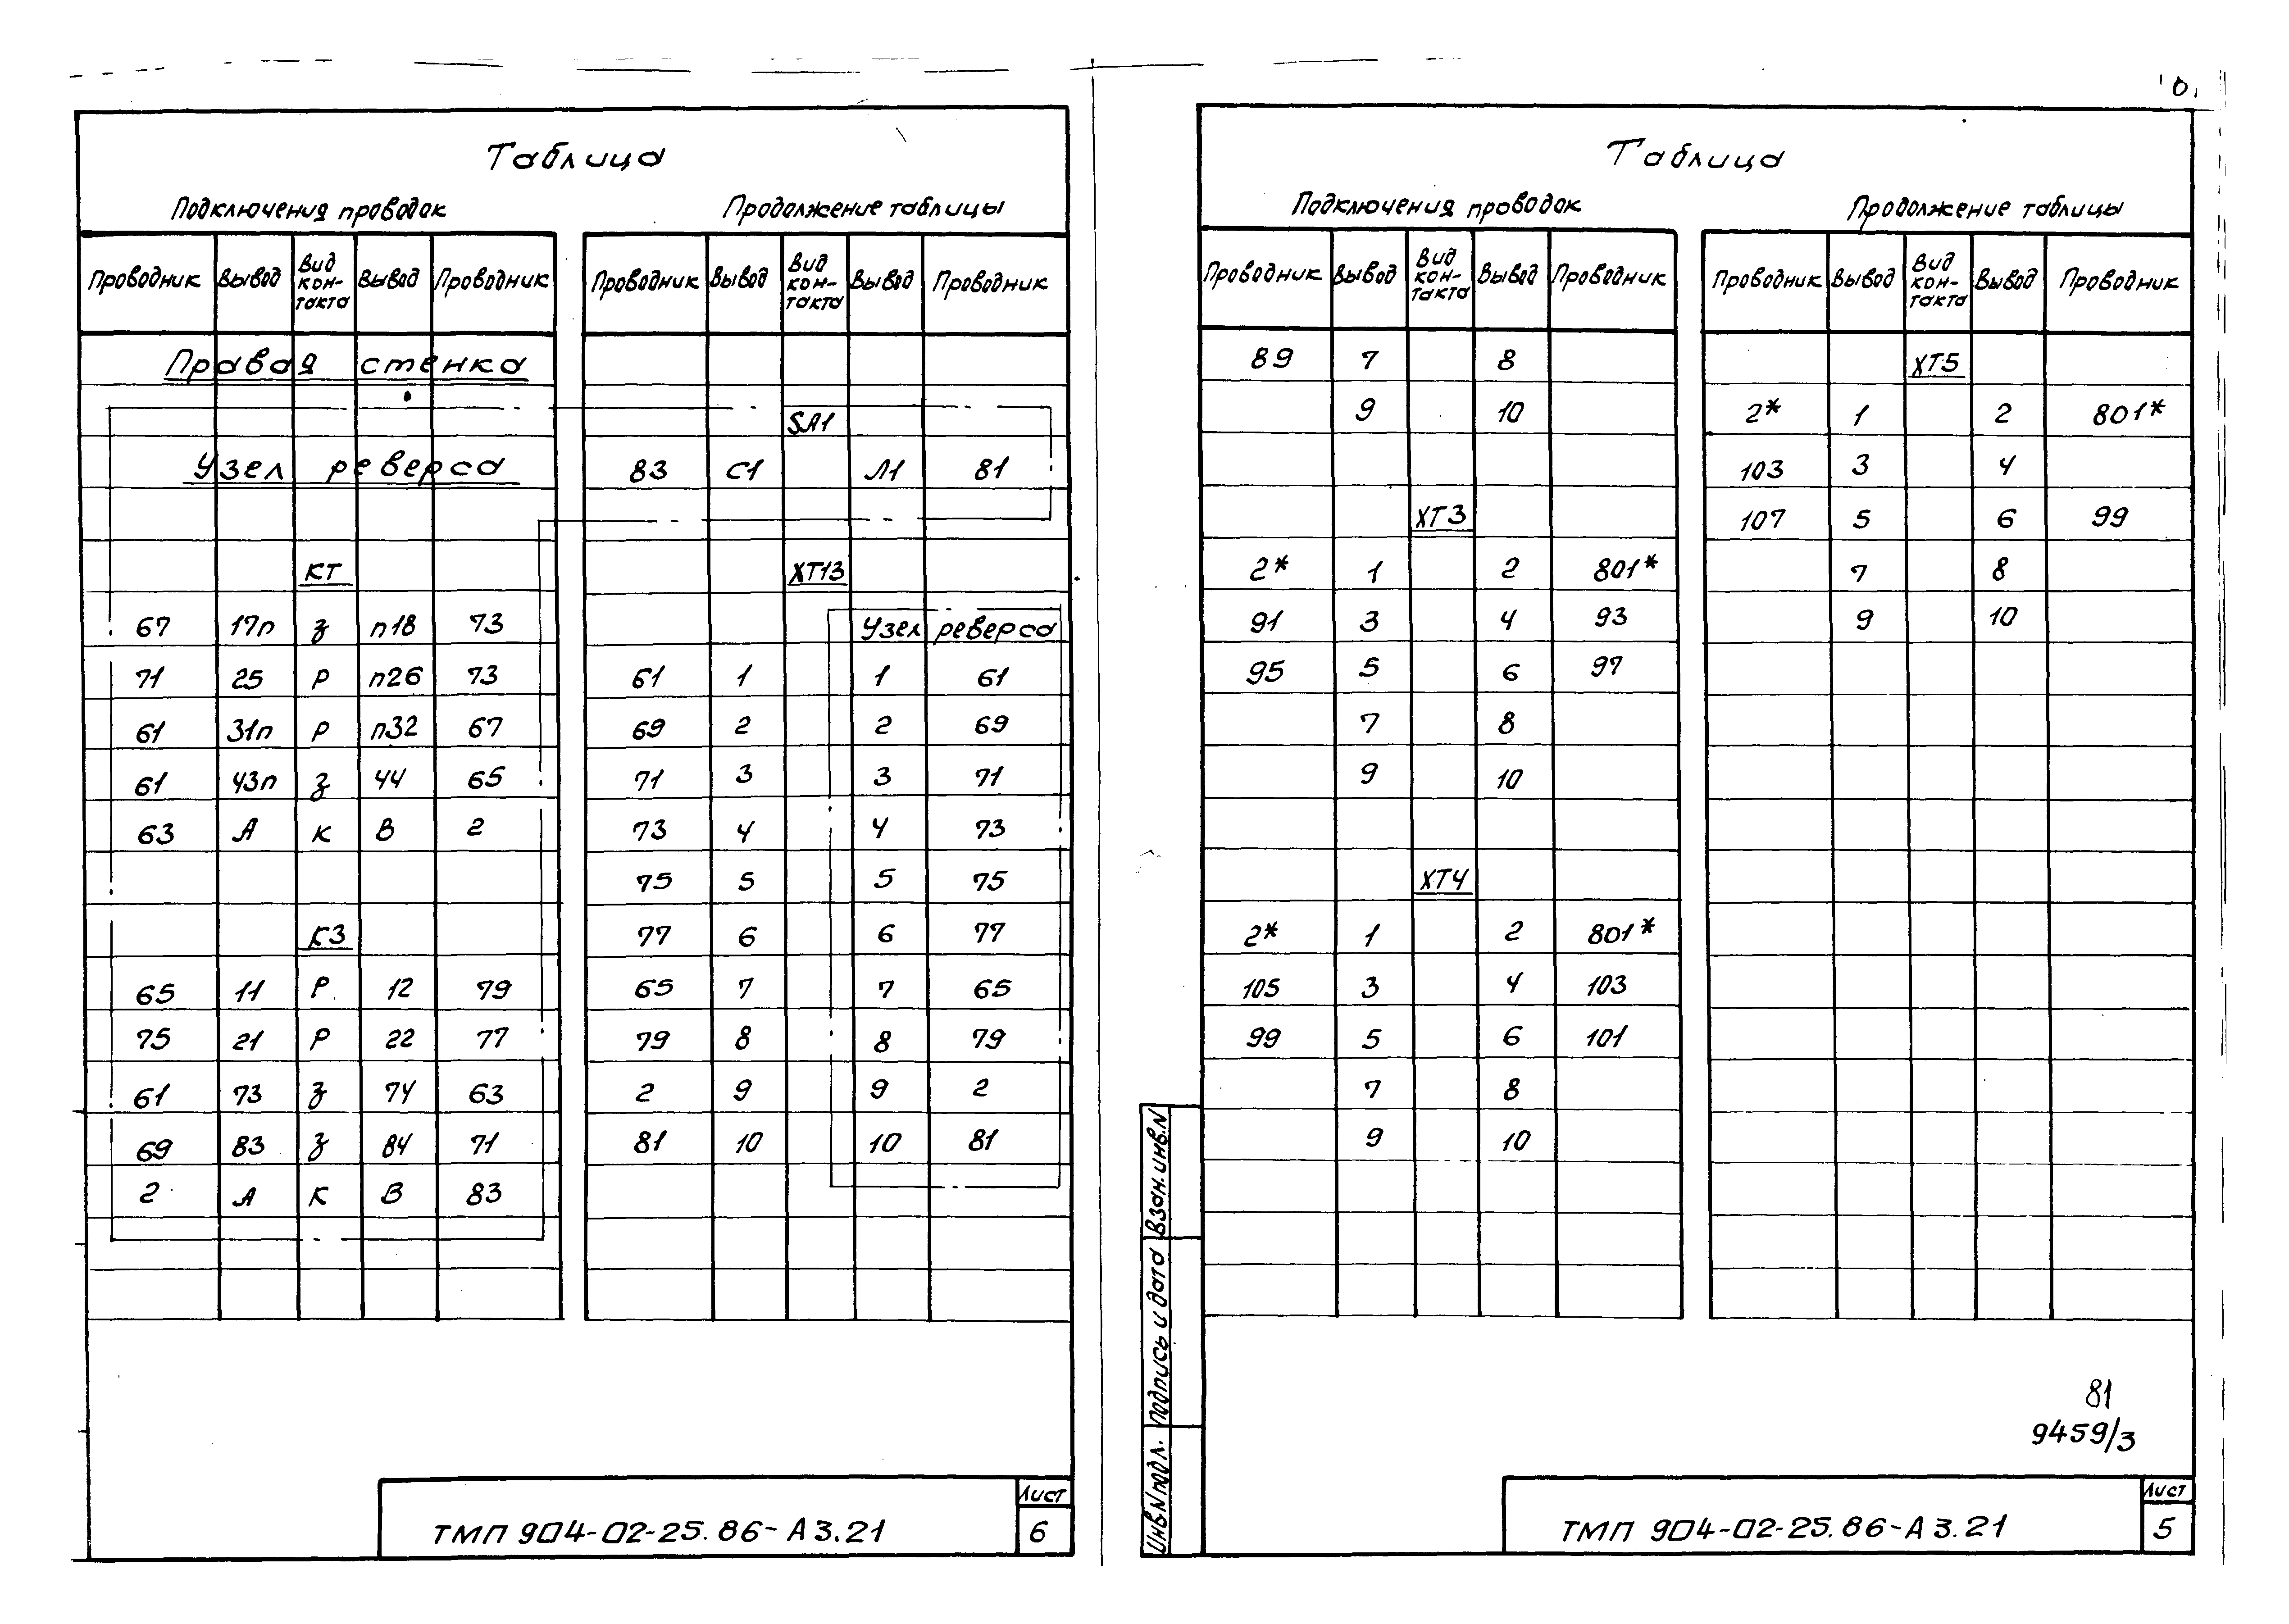 Таблица
Подключения проводок
Продолжение таблицы
Проводник Вывод Вид кон-такта Вывод Проводник
Правая стенка
Узел реверса
КТ
67 17п з п18 73
71 25 Р п26 73
61 31п Р п32 67
61 43п з 44 65
63 А К В 2
К3
65 11 Р 12 79
75 21 Р 22 77
61 73 з 74 63
69 83 з 84 71
2 А К В 83
Проводник Вывод Вид кон-такта Вывод Проводник
SA1
83 С1 Л1 81
ХТ13
Узел реверса
61 1 1 61
69 2 2 69
71 3 3 71
73 4 4 73
75 5 5 75
77 6 6 77
65 7 7 65
79 8 8 79
2 9 9 2
81 10 10 81
ТМП 904-02-25.86-А3.21
Лист
6
Таблица
Подключения проводок
Продолжение таблицы
Проводник Вывод Вид кон-такта Вывод Проводник
89 7 8
9 10
ХТ3
2* 1 2 801*
91 3 4 93
95 5 6 97
7 8
9 10
ХТ4
2* 1 2 801*
105 3 4 103
99 5 6 101
7 8
9 10
Проводник Вывод Вид кон-такта Вывод Проводник
ХТ5
2* 1 2 801*
103 3 4
107 5 6 99
7 8
9 10
Взам. инв. N
Подпись и дата
Инв. N подл.
81
9459/3
ТМП 904-02-25.86-А3.21
Лист
5